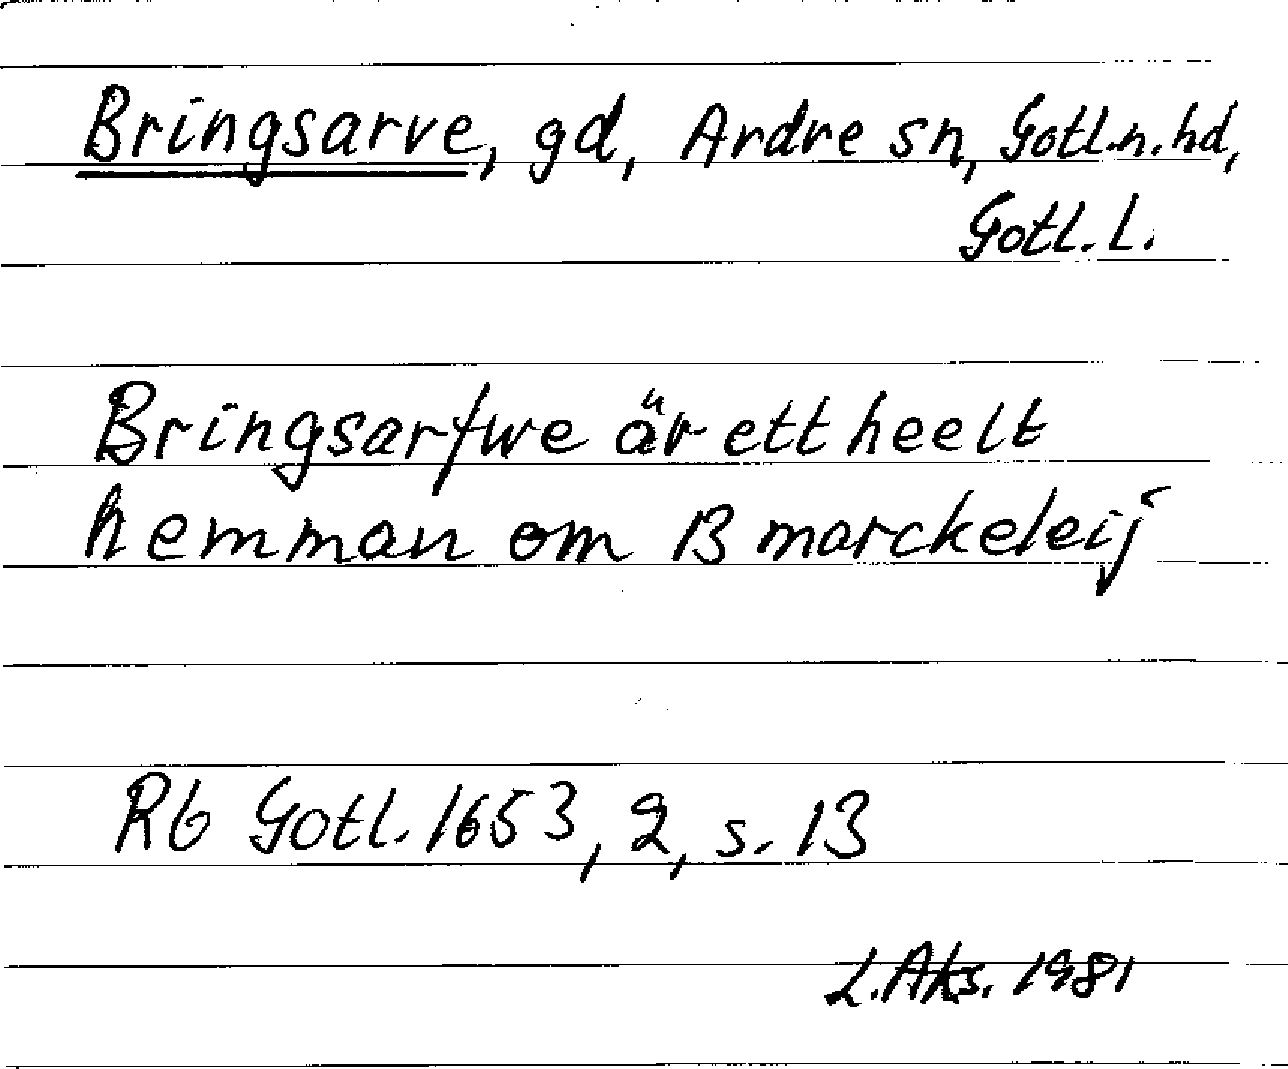 Bringsarve, gd, Ardre sn, Gotl.n.hd,
Gotl. l.
Bringsarfwe är ett heelt
hemman om 13 marckeleij
Rb Gotl. 1653, 2, s. 13
L. Aks. 1981